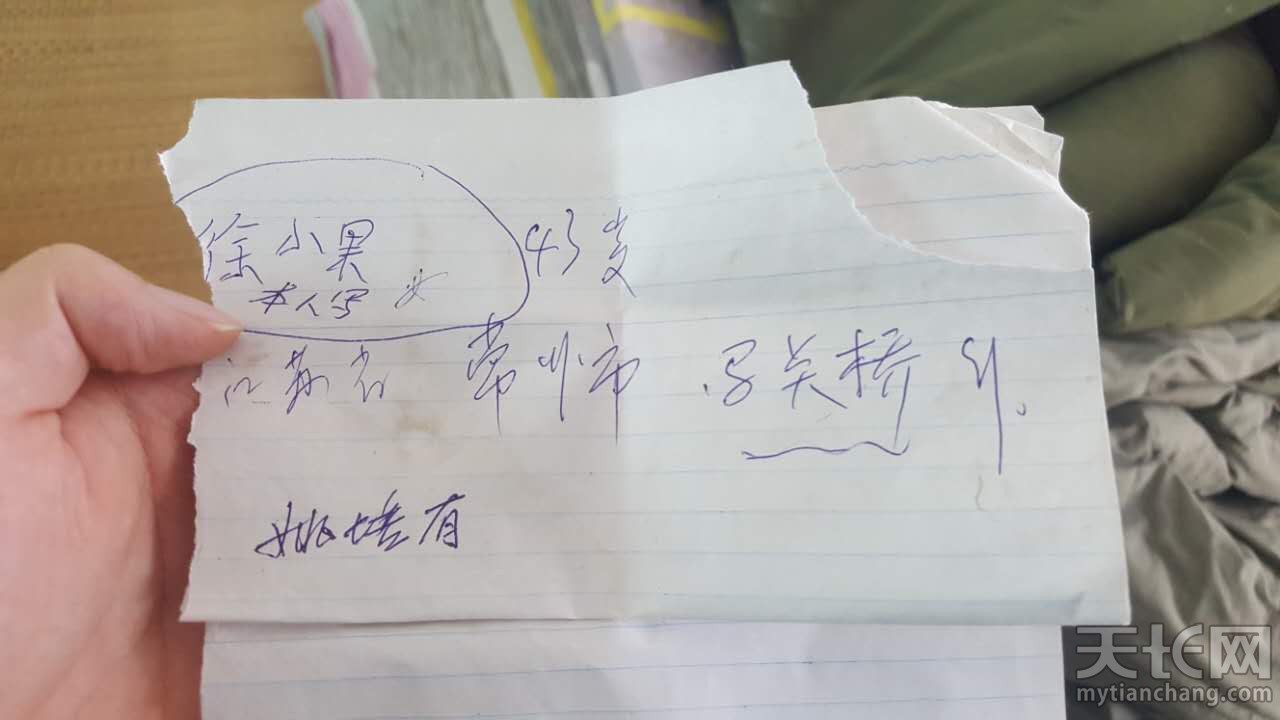 徐小果 43岁
本人写 女
江苏省 常州市 马关桥
姚培有
天长网
mytianchang.com